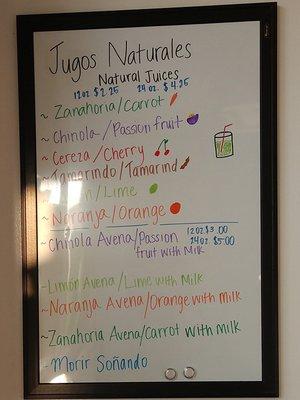 Jugos Naturales
Natural Juices
12oz $2.25 24oz. $4.25
~ Zanahoria/Carrot
~ Chinola/Passion fruit
~ Cereza/Cherry
~ Tamarindo/Tamarind
~ /Lime
~ Naranja/Orange
~ Chinola Avena/Passion 12oz $3.00
fruit with Milk 24oz. $5.00
-Limón Avena/Lime with Milk
-Naranja Avena/Orange with milk
-Zanahoria Avena/Carrot with milk
-Morir Soñando